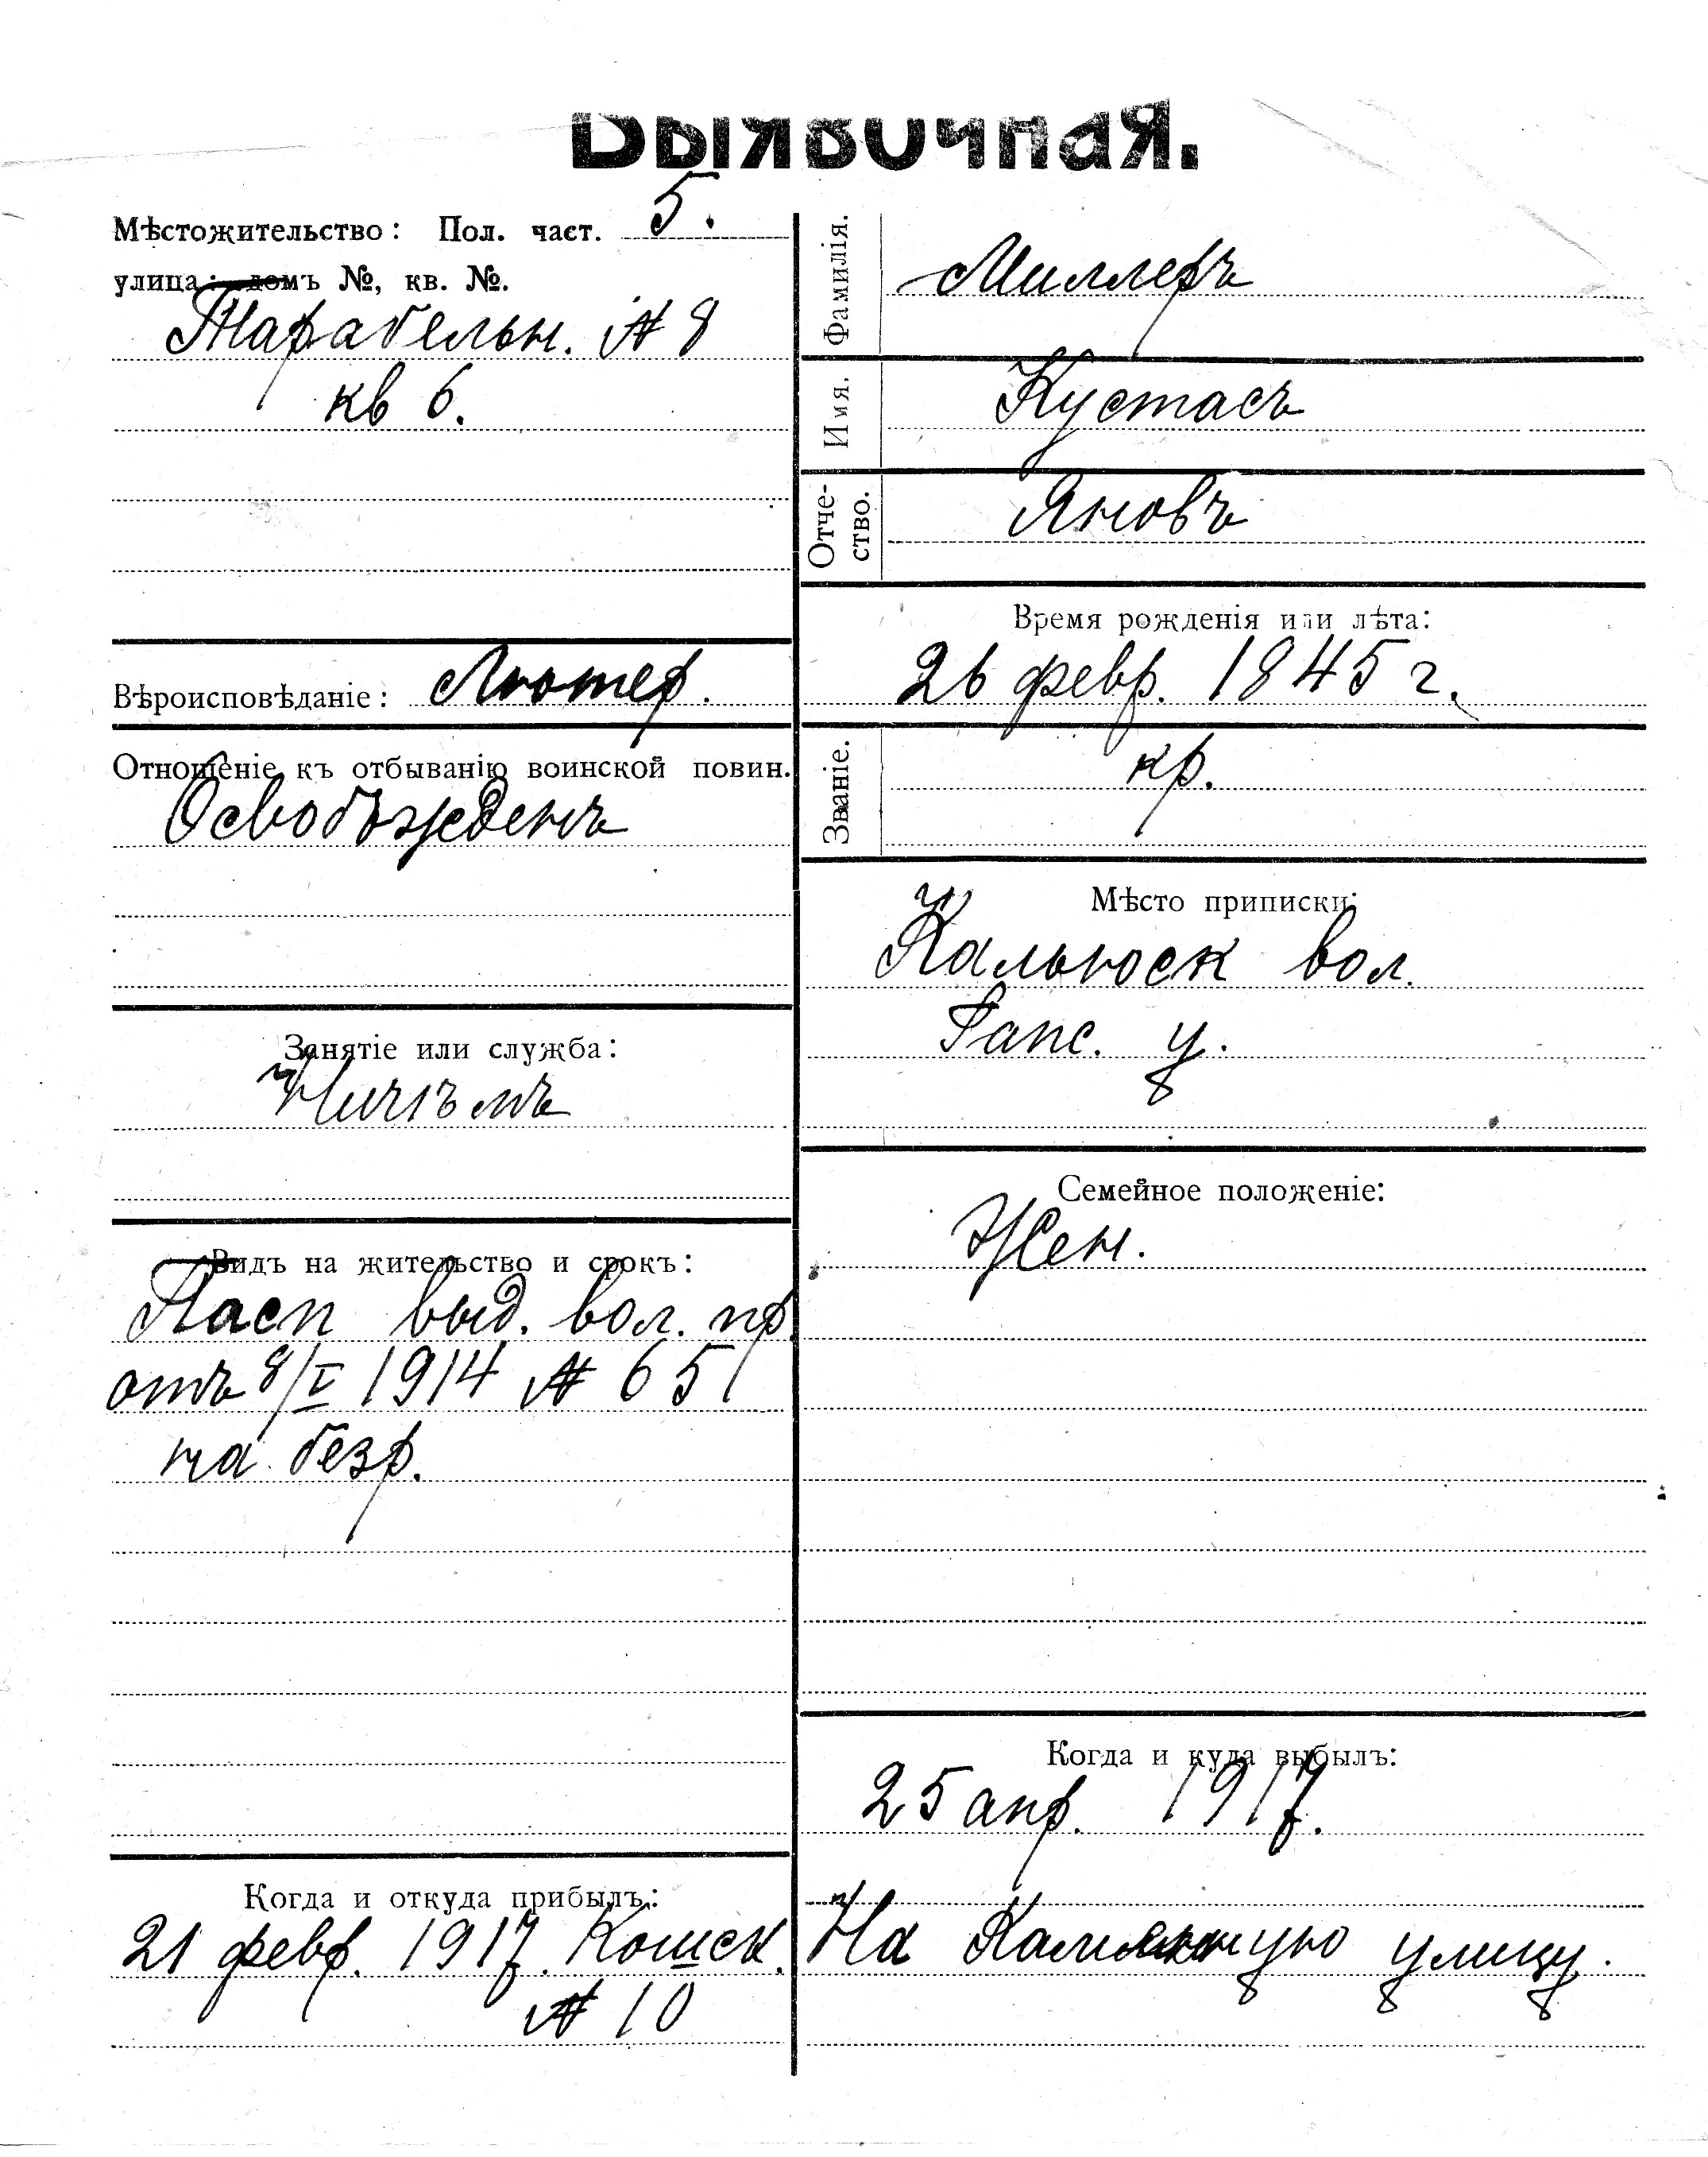 Выявочная.
Мѣстожительство: Пол. част. 5.
улица: домъ №, кв. №.
Тарабельн. № 8
кв 6.
Вѣроисповѣданіе: Лютер.
Отношеніе къ отбыванію воинской повин.
Освобожденъ
Занятіе или служба:
Ничѣмъ
Видъ на жительство и срокъ:
Пасп выд. вол. пр.
отъ 8/I 1914 № 651
на безр.
Когда и откуда прибылъ:
21 февр. 1917. Кошск.
№ 10
Фамилія. Миллеръ
Имя. Кустасъ
Отче-
ство. Яновъ
Время рожденія или лѣта:
26 февр. 1845 г.
Званіе. кр.
Мѣсто приписки:
Кальюск вол.
Гапс. у.
Семейное положеніе:
Жен.
Когда и куда выбылъ:
25 апр. 1917.
На улицу.